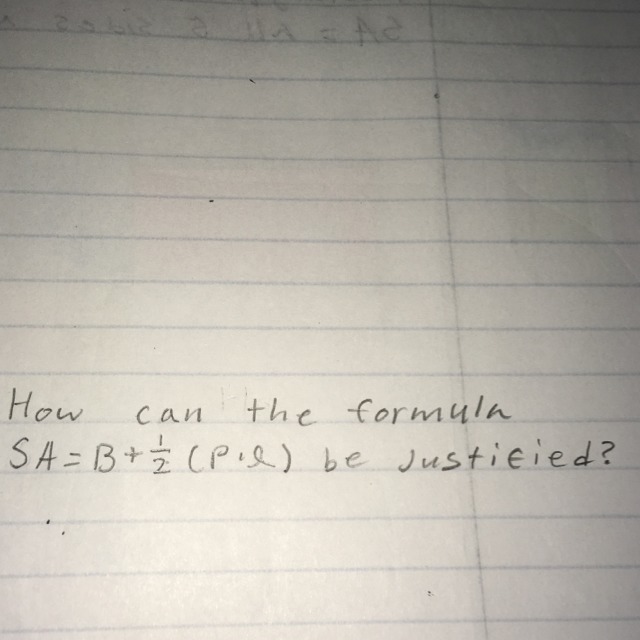 How can the formula
SA = B + 1/2 (P·l) be Justified?